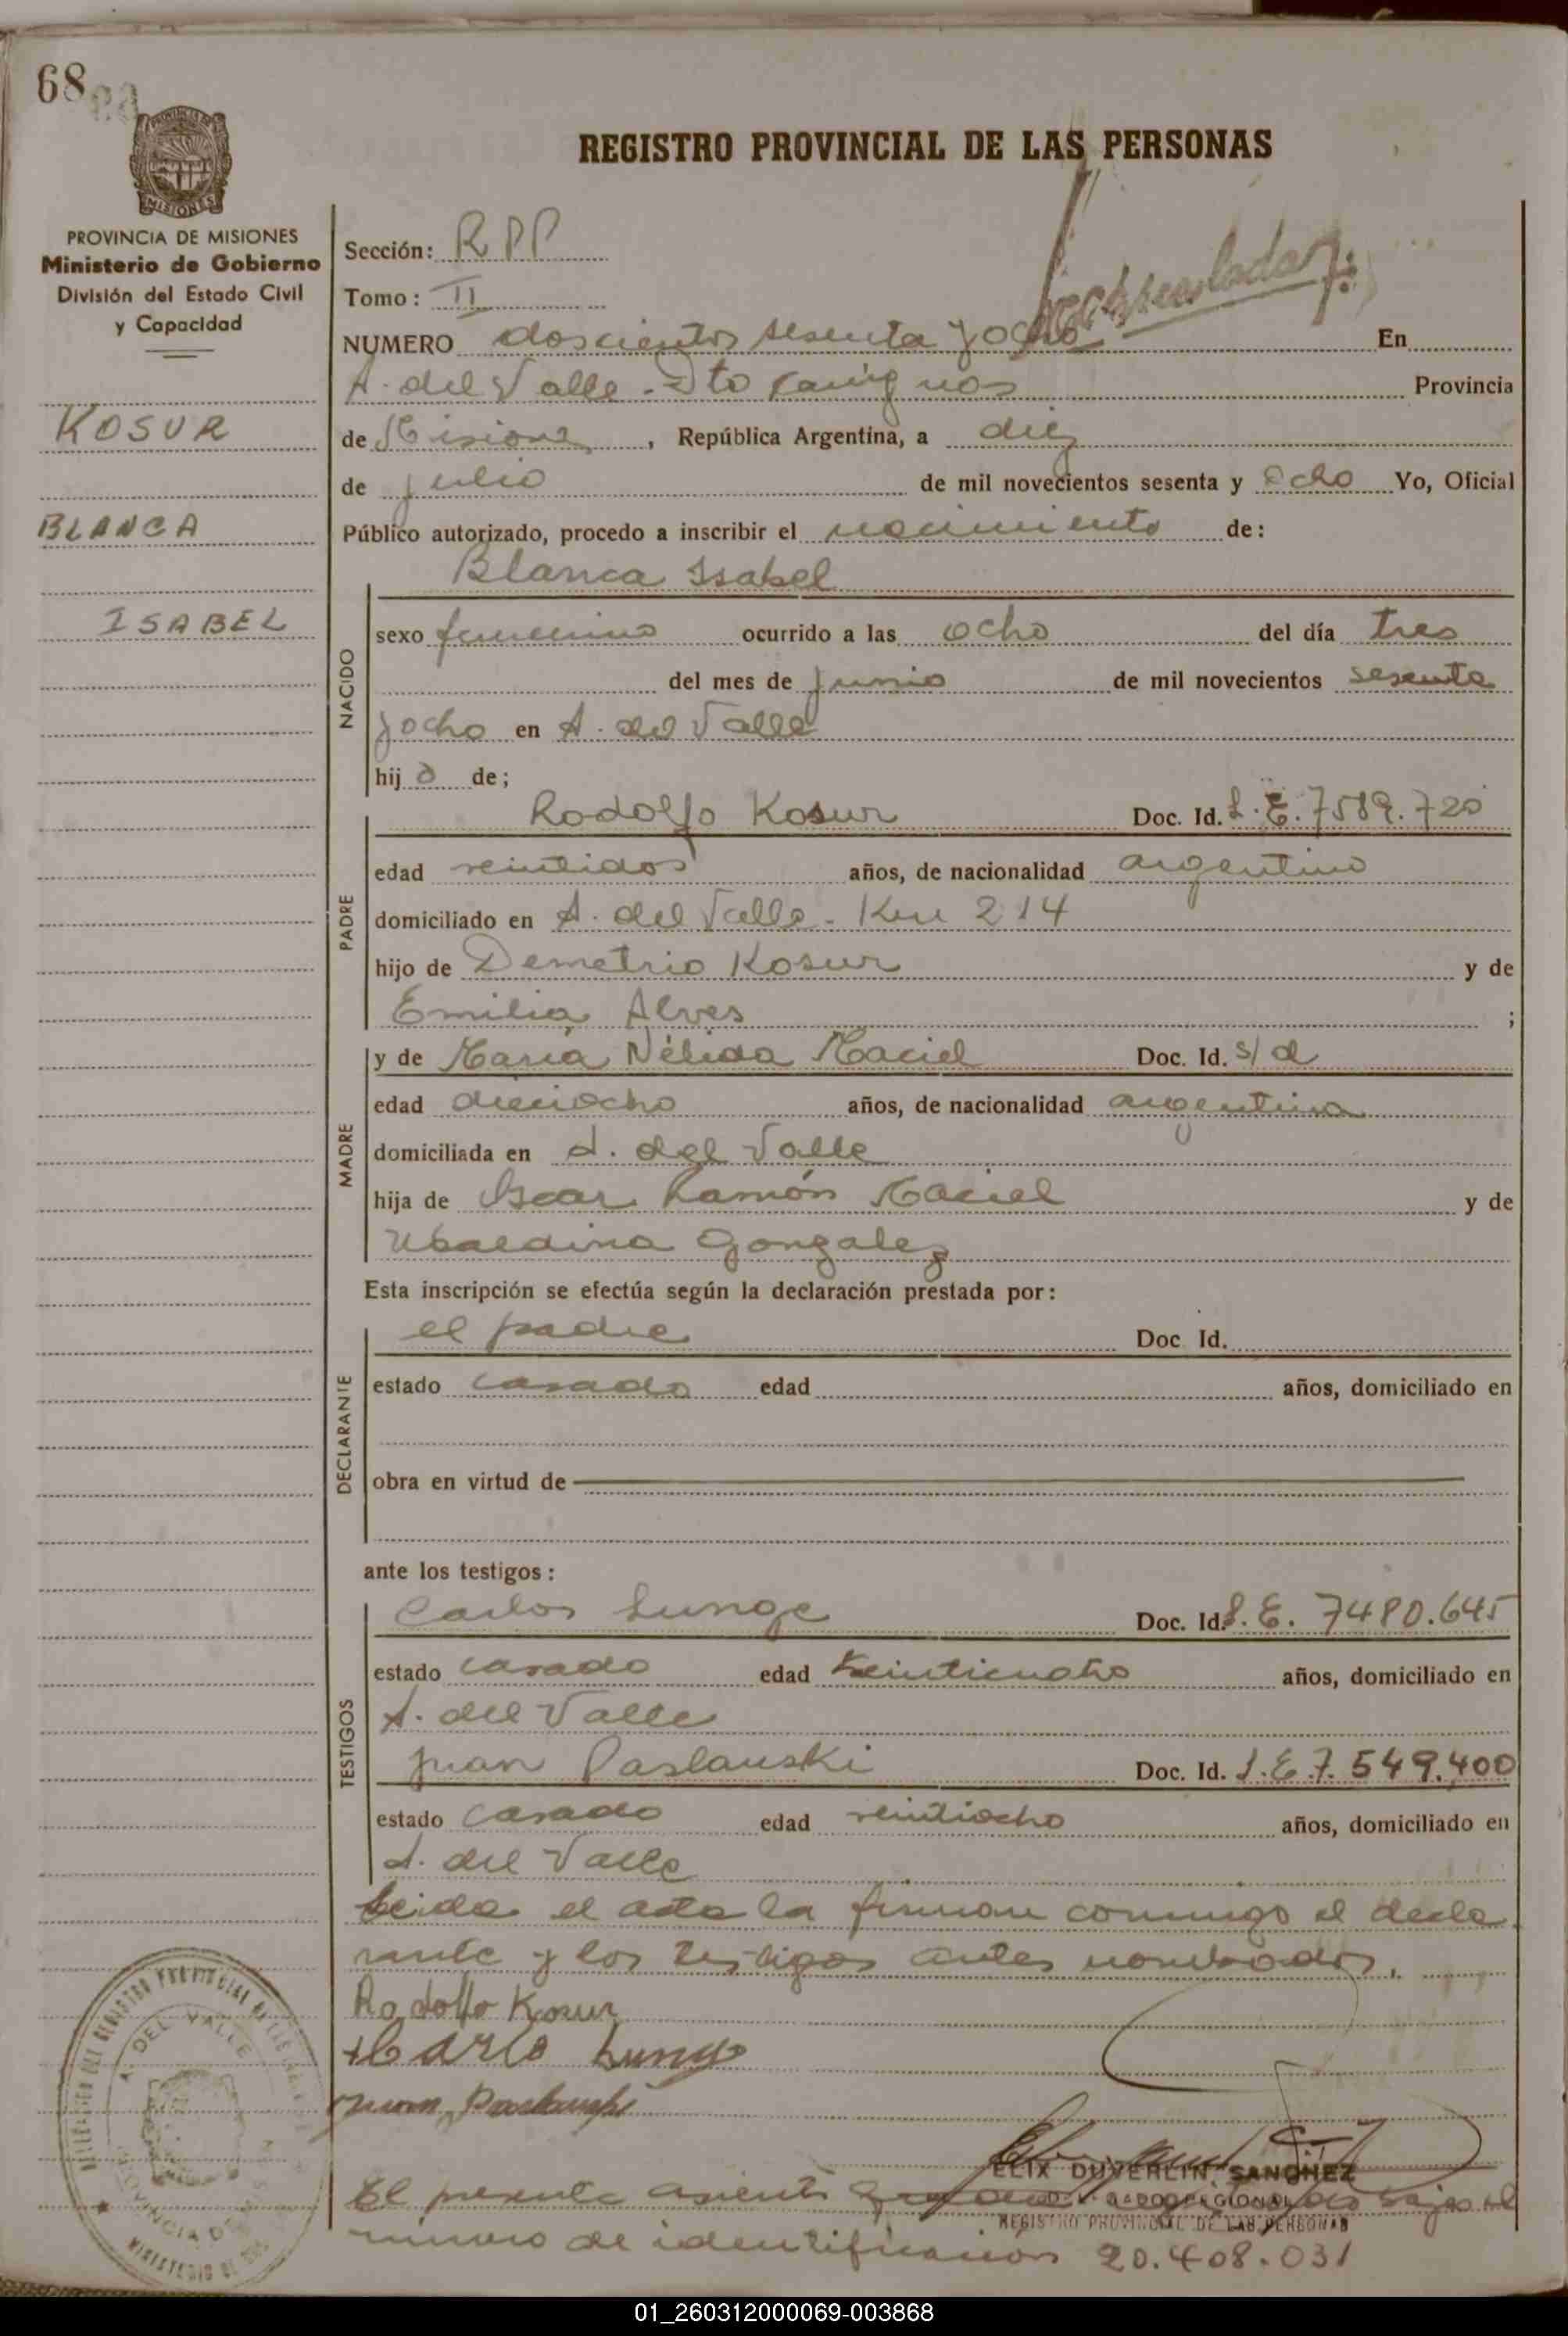 68
REGISTRO PROVINCIAL DE LAS PERSONAS
MISIONES
PROVINCIA DE MISIONES
Ministerio de Gobierno
División del Estado Civil
y Capacidad
KOSUR
BLANCA
ISABEL
Sección: R P P
Tomo: II
NUMERO doscientos sesenta y ocho En
A. del Valle - Dto Cainguas Provincia
de Misiones, República Argentina, a diez
de julio de mil novecientos sesenta y ocho Yo, Oficial
Público autorizado, procedo a inscribir el nacimiento de:
Blanca Isabel
NACIDO
sexo femenino ocurrido a las ocho del día tres
del mes de junio de mil novecientos sesenta
y ocho en A. del Valle
hij a de;
PADRE
Rodolfo Kosur Doc. Id. L.E. 7589.720
edad veintidos años, de nacionalidad argentino
domiciliado en A. del Valle - Km 214
hijo de Demetrio Kosur y de
Emilia Alves ;
MADRE
y de María Nélida Maciel Doc. Id. s/d
edad dieciocho años, de nacionalidad argentina
domiciliada en A. del Valle
hija de Oscar Ramón Maciel y de
Ubaldina Gonzalez
Esta inscripción se efectúa según la declaración prestada por:
DECLARANTE
el padre Doc Id.
estado casado edad años, domiciliado en
obra en virtud de
ante los testigos:
TESTIGOS
Carlos Lunge Doc. Id. L.E. 7480.645
estado casado edad años, domiciliado en
A. del Valle
Juan Paslauski Doc. Id. L.E. 7.549.400
estado casado edad veintiocho años, domiciliado en
A. del Valle
Leida el acta la firman conmigo el decla
rante y los testigos antes nombrados.
Rodolfo Kosur
Juan Paslauski
ELIX DUVERLIN SANCHEZ
REGISTRO PROVINCIAL DE LAS PERSONAS
El presente asiento bajo el
número de identificación 20.408.031
A. DEL VALLE
01_260312000069-003868